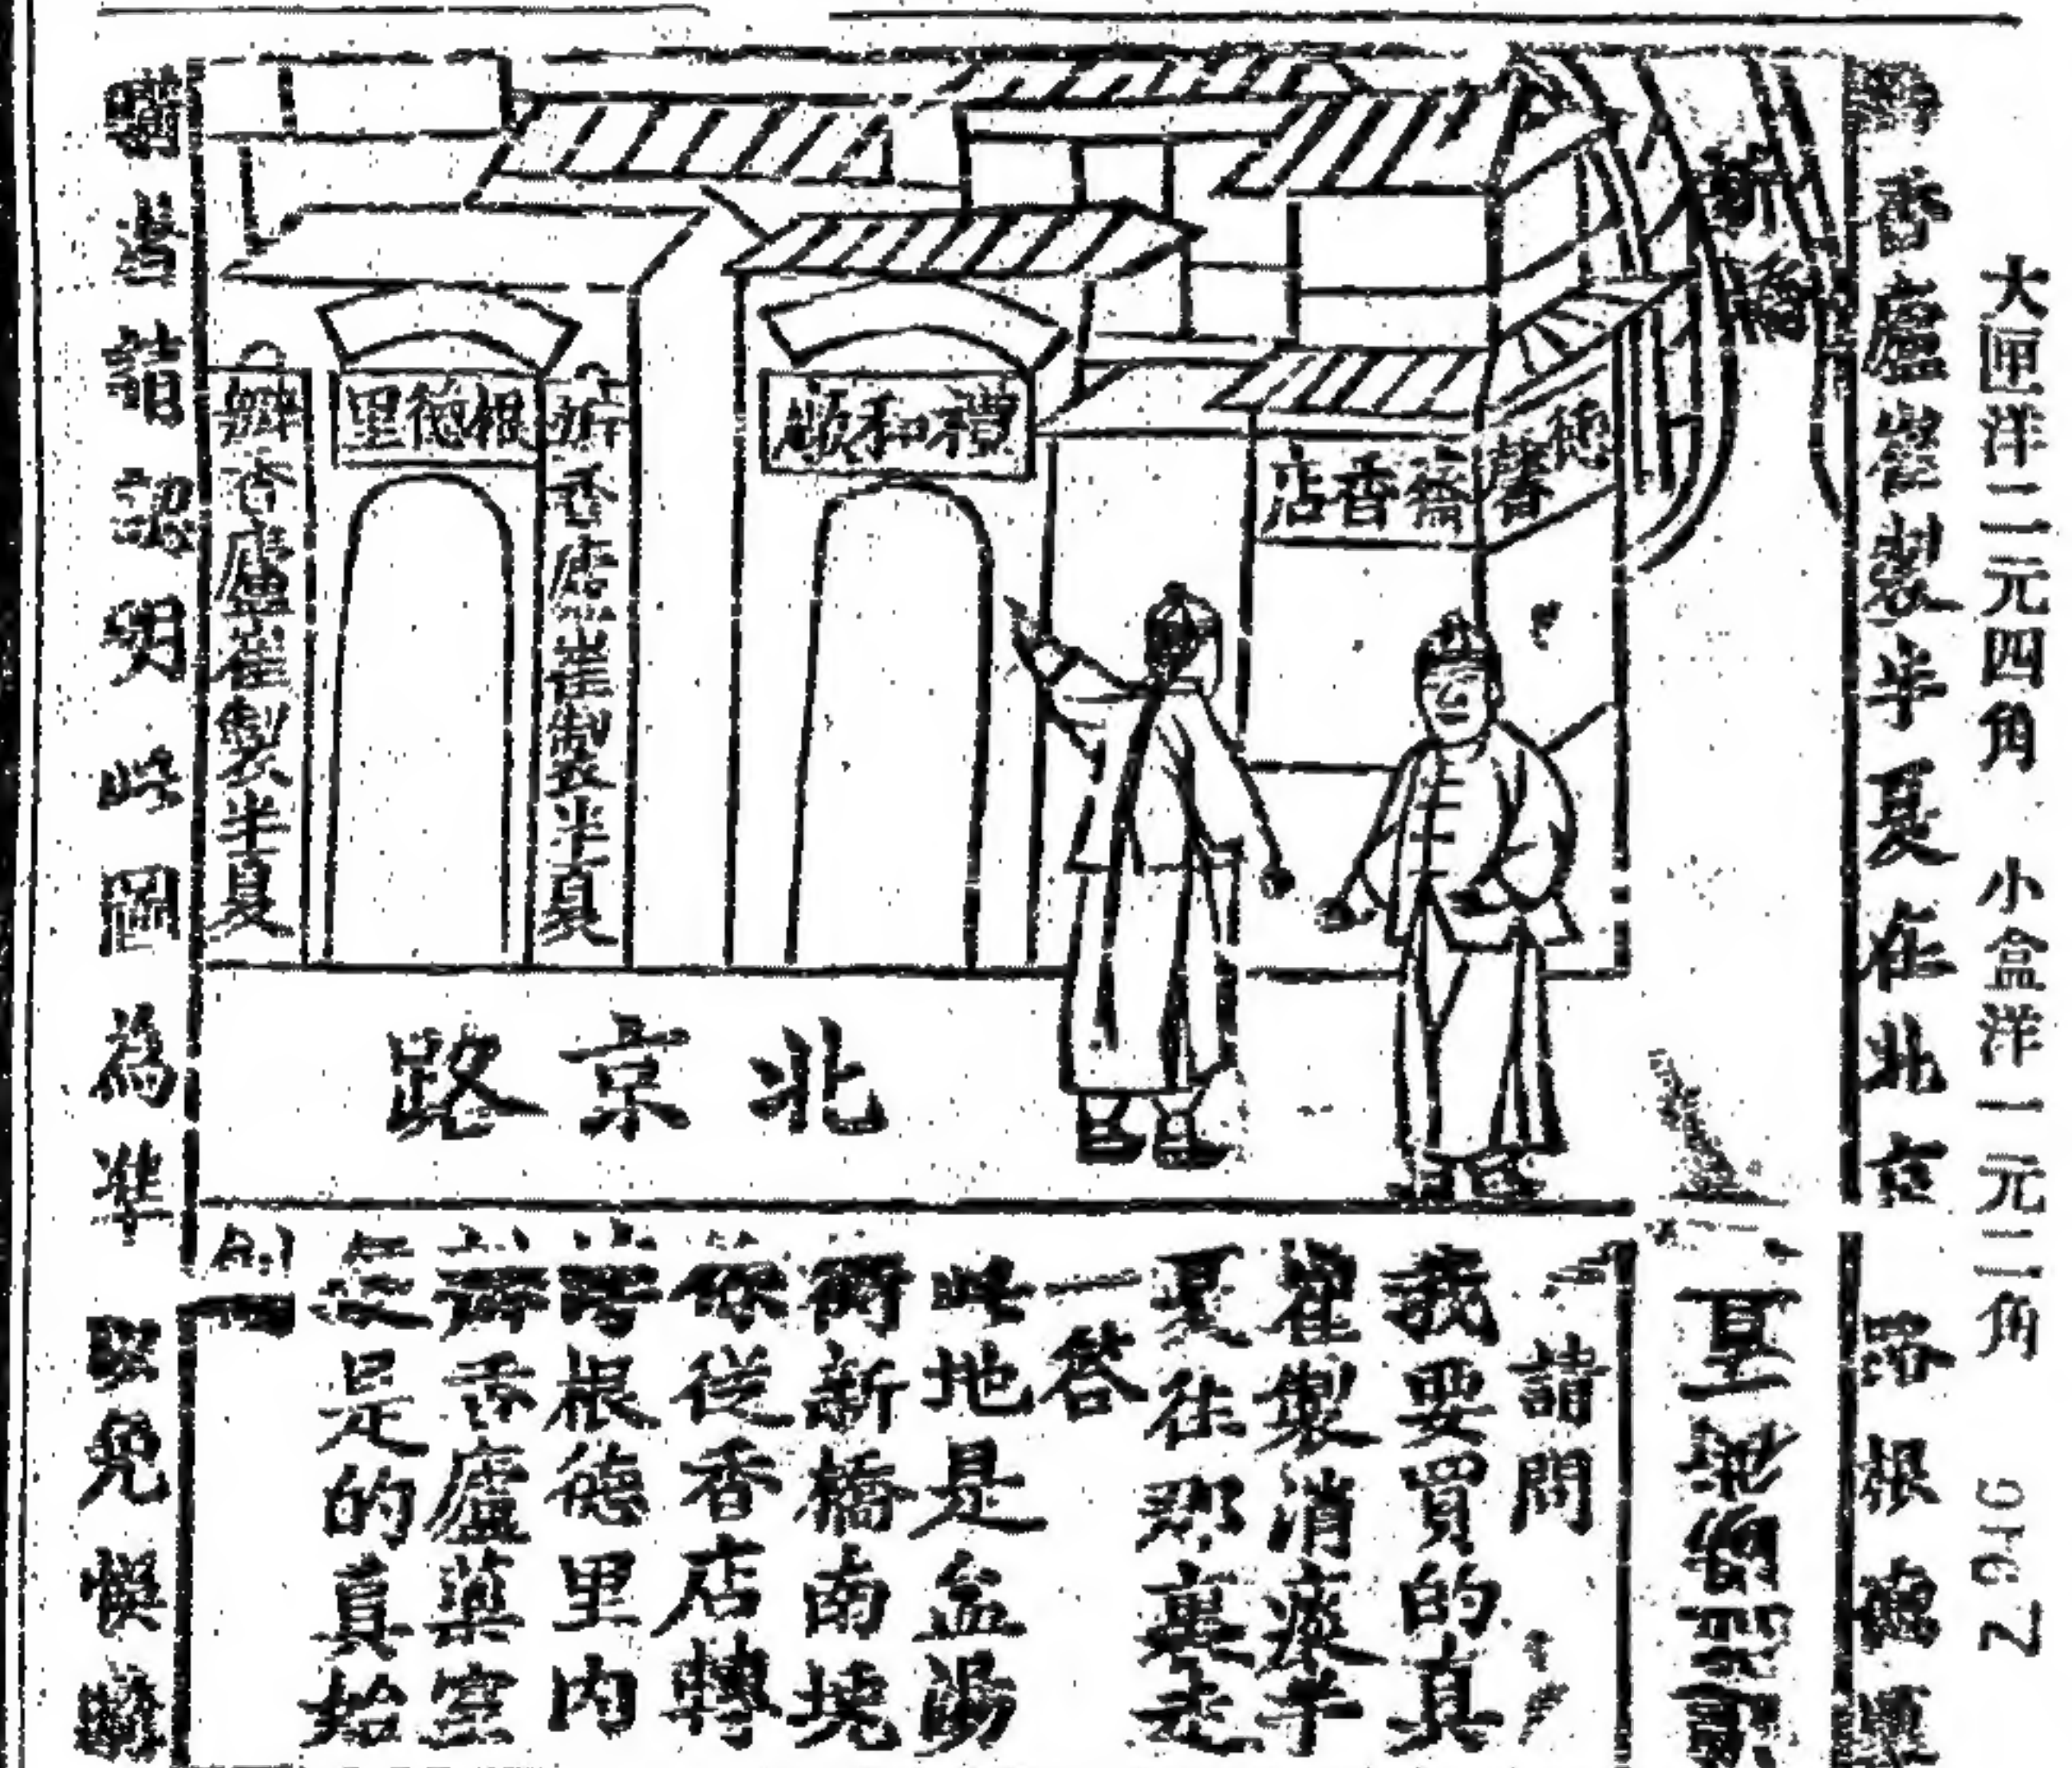 大匣洋二元四角 小盒洋一元二角
香廬崔製半夏在北京路根德里
新橋
德馨齋香店
禮和順
根德里
香廬崔製半夏
香廬崔製半夏
北京路
請問
我要買的真
崔製消痰半
夏往那裏走
一答
此地是盆湯
衖新橋南堍
你從香店轉
灣根德里內
香廬葉室
是的真始
購者請認明此圖為準以免悞